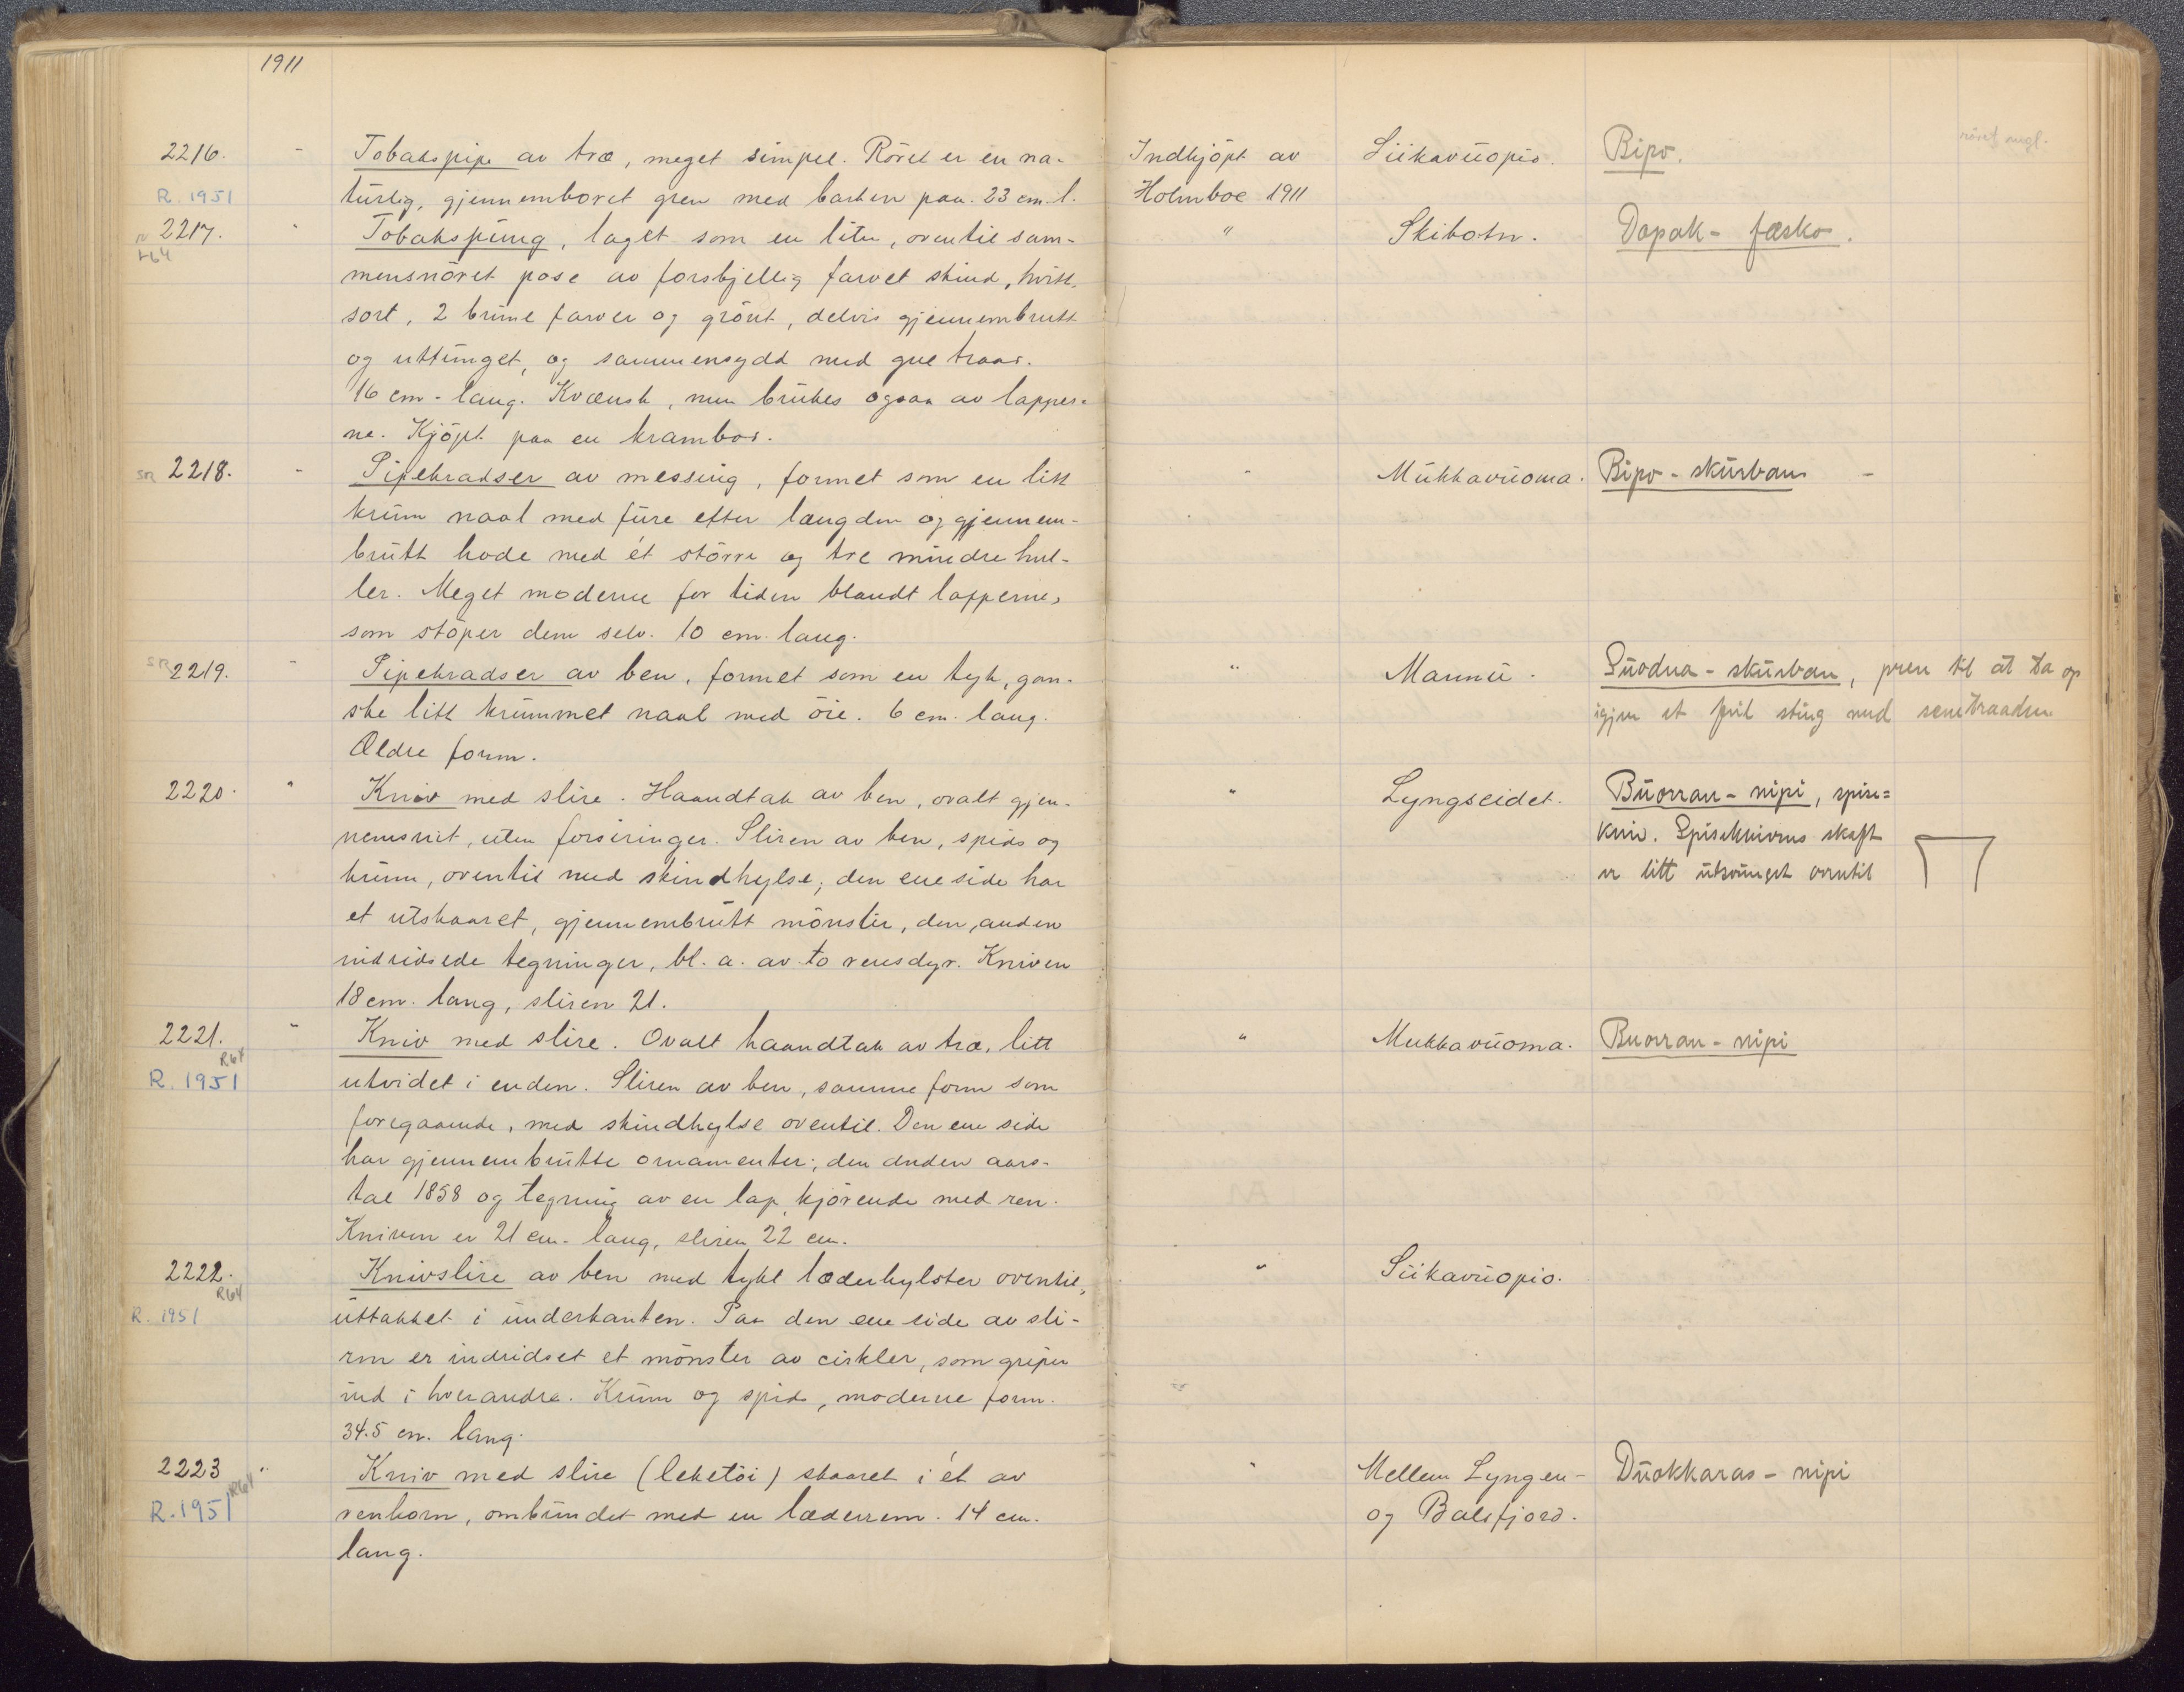 1911
2216. " Tobakspipe av træ, meget simpel. Röret er en na-
R. 1951 türlig, gjennemboret gren med barken paa. 23 cm. l.
Indkjöpt av Holmboe 1911
Siikavüopio.
Bipo.
röret mgl.
2217. " Tobakspüng, laget som en liten, oventil sam-
R64 mensnöret pose av forskjellig farvet skind, hvitt,
sort, 2 brüne farver og grönt, delvis gjennembrutt
og uttünget, og sammensydd med gue traar.
16 cm. lang. Kvænsk, men brükes ogsaa av lapper-
ne. Kjöpt paa en krambod.
" Skibotn.
Dopak-fæsko.
SR 2218. " Pipekradser av messing, formet som en litt
krüm naal med füre efter længden og gjennem-
brütt hode med ét större og tre mindre hul-
ler. Meget moderne for tiden blandt lapperne,
som stöper dem selv. 10 cm. lang.
" Mükkavüoma.
Bipo-skürban -
SR 2219. " Pipekradser av ben, formet som en tyk, gan-
ske litt krümmet naal med öie. 6 cm. lang.
Ældre form.
" Mannü.
Süodna-skürban, pren til at ta op
igjen et feil sting med senetraaden
2220. " Kniv med slire. Haandtak av ben, ovalt gjen-
nemsnit, uten forsiringer. Sliren av ben, spids og
krüm, oventil med skindhylse; den ene side har
et utskaaret, gjennembrütt mönster, den anden
indridsede tegninger, bl. a. av to rensdyr. Kniven
18 cm. lang, sliren 21.
" Lyngseidet.
Büorran-nipi, spise=
kniv. Spiseknivens skaft
er litt ütsvünget oventil
2221. " Kniv med slire. Ovalt haandtak av træ, litt
R64
R. 1951 utvidet i enden. Sliren av ben, samme form som
foregaaende, med skindhylse oventil. Den ene side
har gjennembrütte ornamenter; den anden aars-
tal 1858 og tegning av en lap kjörende med ren.
Kniven er 21 cm. lang, sliren 22 cm.
" Mukkavüoma.
Buorran-nipi
2222. Knivslire av ben med tykt læderhylster oventil,
R64
R. 1951 üttakket i ünderkanten. Paa den ene side av sli-
ren er indridset et mönster av cirkler, som griper
ind i hverandre. Krüm og spids, moderne form.
34.5 cm. lang.
" Siikavüopio.
2223 " Kniv med slire (leketöi) skaaret i ét av
R64
R. 1951 renhorn, ombündet med en læderrem. 14 cm.
lang.
" Mellem Lyngen-
og Balsfjord.
Düokkaras-nipi